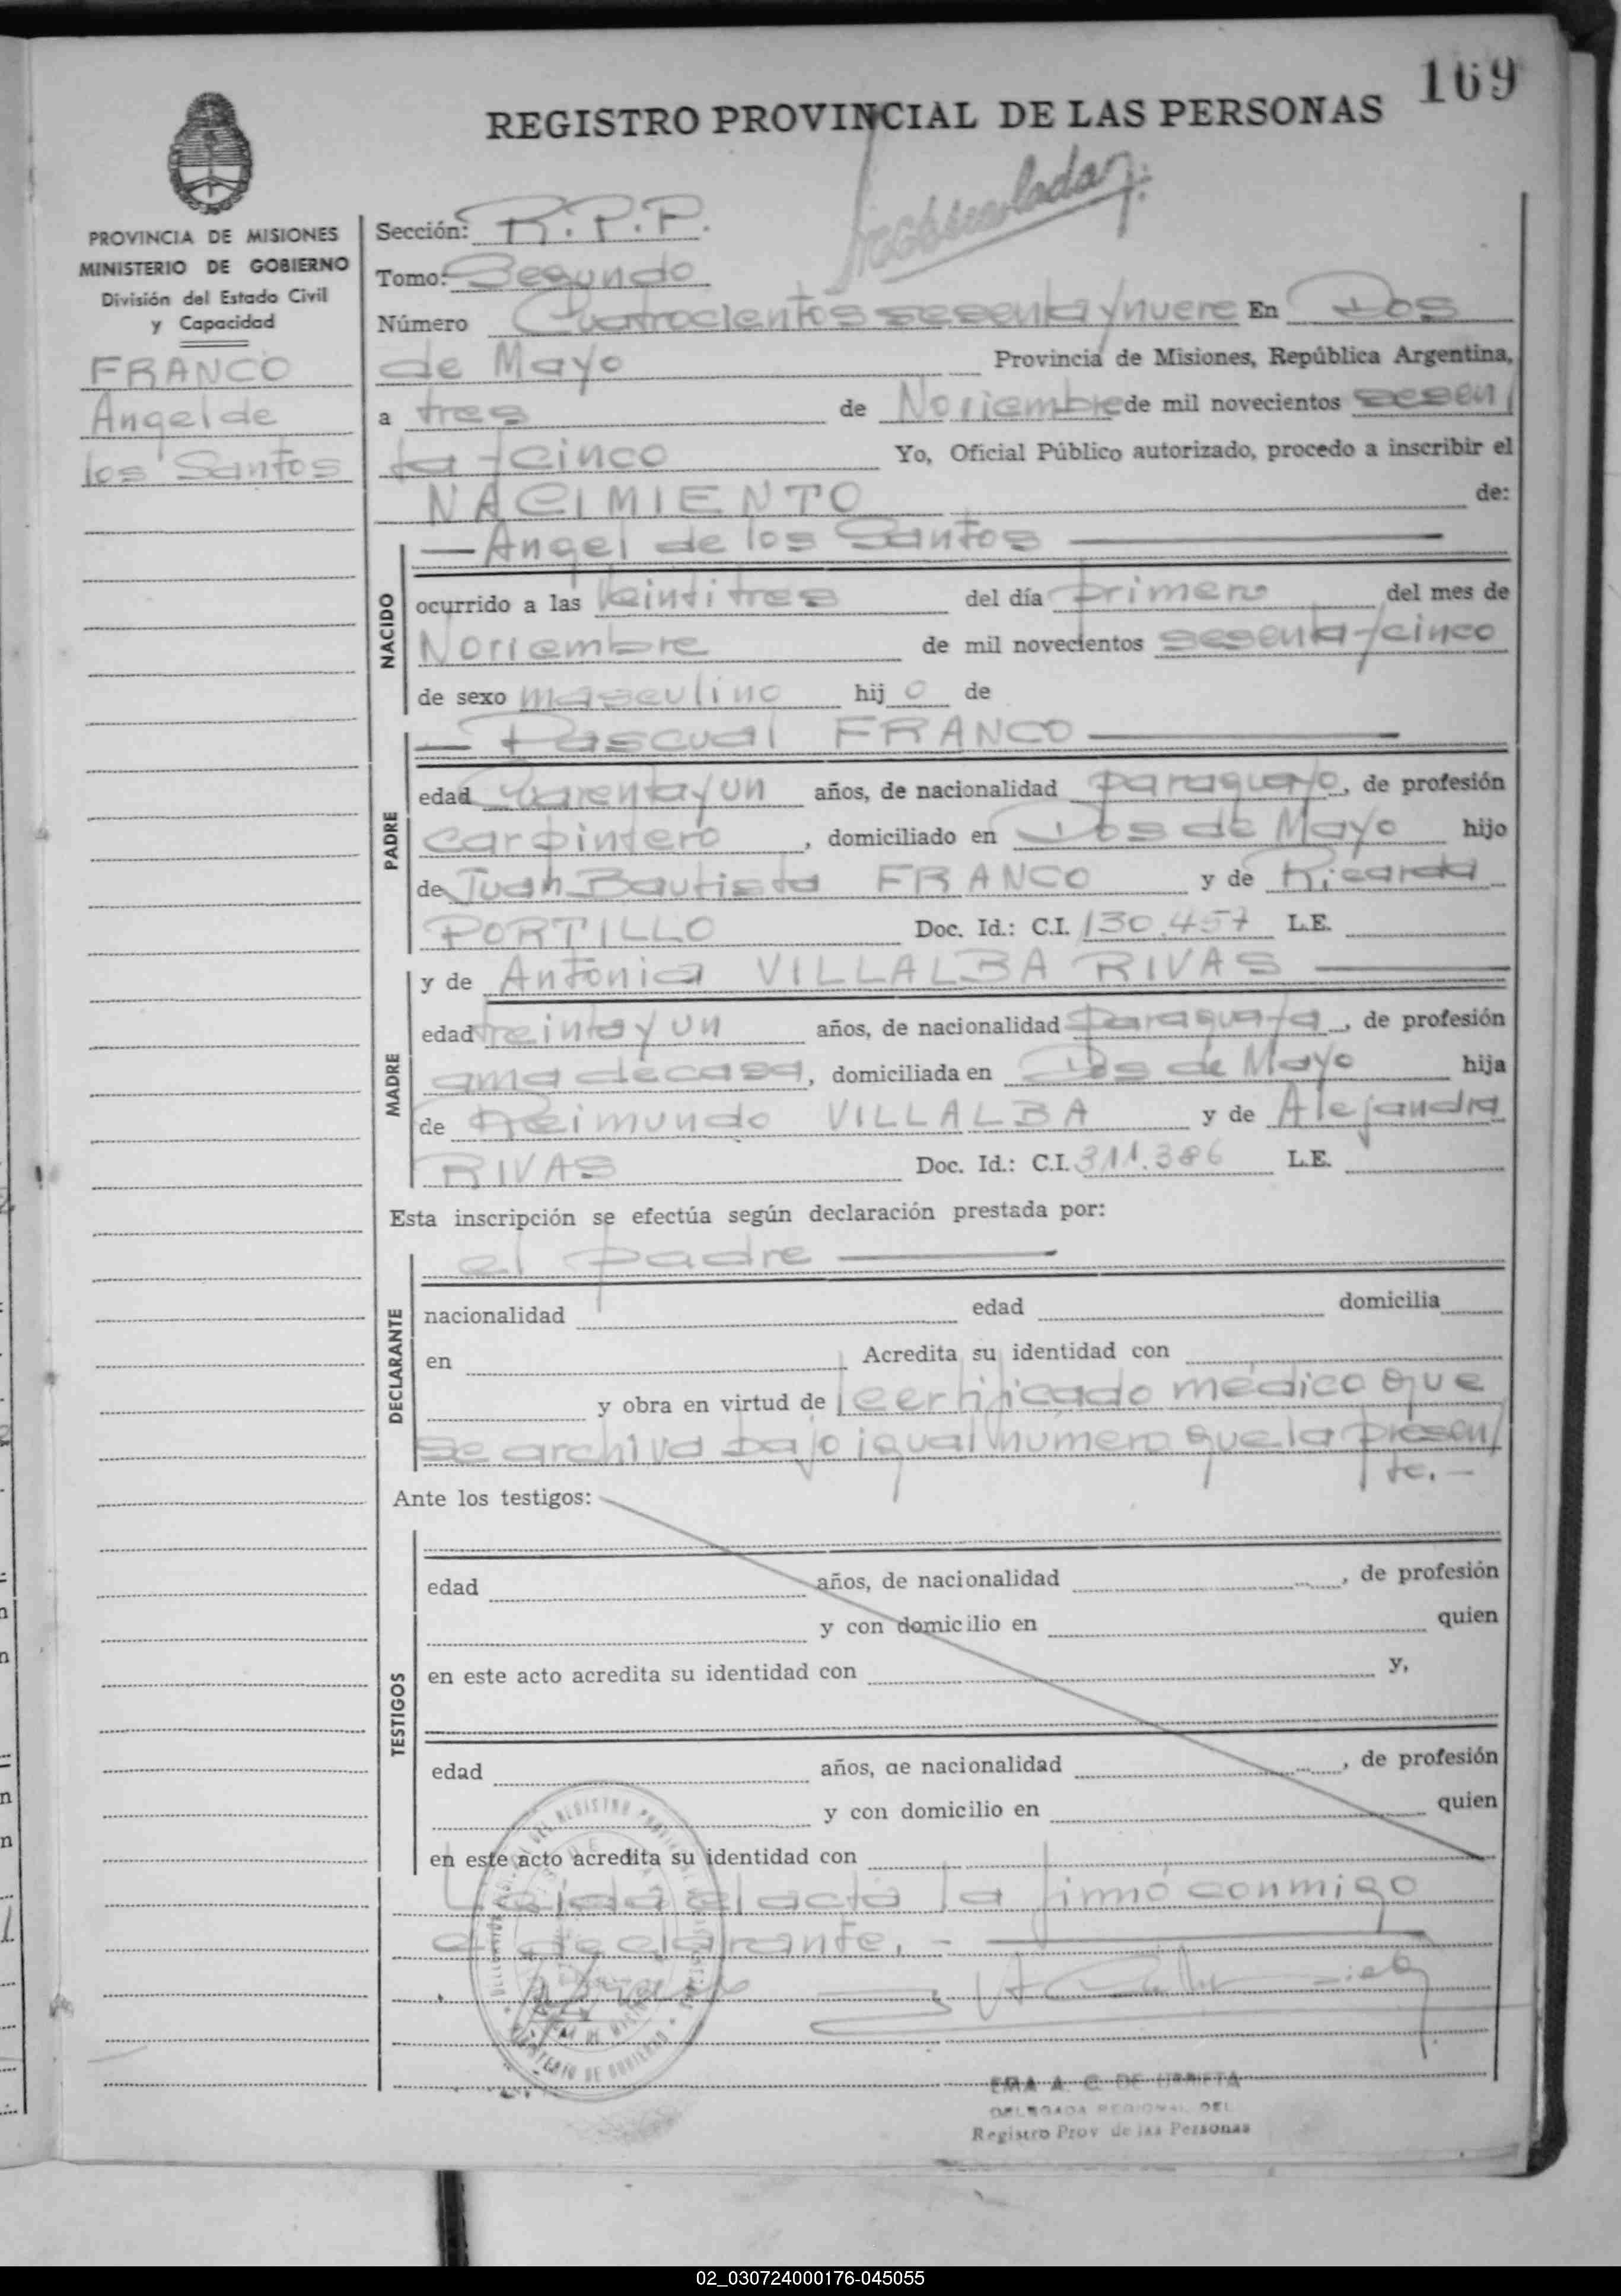 169
REGISTRO PROVINCIAL DE LAS PERSONAS
PROVINCIA DE MISIONES
MINISTERIO DE GOBIERNO
División del Estado Civil
y Capacidad
FRANCO
Angel de
los Santos
Sección: R.P.P.
Tomo: Segundo
Número Cuatrocientos sesenta y nueve En Dos
de Mayo Provincia de Misiones, República Argentina,
a tres de Noviembre de mil novecientos sesen/
ta y cinco Yo, Oficial Público autorizado, procedo a inscribir el
NACIMIENTO de:
— Angel de los Santos —
NACIDO
ocurrido a las veintitres del día primero del mes de
Noviembre de mil novecientos sesenta y cinco
de sexo masculino hijo de
— Pascual FRANCO —
PADRE
edad Cuarenta y un años, de nacionalidad paraguayo, de profesión
carpintero, domiciliado en Dos de Mayo hijo
de Juan Bautista FRANCO y de Ricarda
PORTILLO Doc. Id.: C.I. 130.457 L.E.
y de Antonia VILLALBA RIVAS —
MADRE
edad treinta y un años, de nacionalidad paraguaya, de profesión
ama de casa, domiciliada en Dos de Mayo hija
de Reimundo VILLALBA y de Alejandra
RIVAS Doc. Id.: C.I. 311.386 L.E.
Esta inscripción se efectúa según declaración prestada por:
el padre —
DECLARANTE
nacionalidad edad domicilia
en Acredita su identidad con
y obra en virtud de certificado médico que
se archiva bajo igual número que la presen/
te.—
Ante los testigos:
TESTIGOS
edad años, de nacionalidad , de profesión
y con domicilio en quien
en este acto acredita su identidad con y,
edad años, de nacionalidad , de profesión
y con domicilio en quien
en este acto acredita su identidad con
Leida el acta la firmó conmigo
el declarante.—
EMA A. C. DE URRIETA
DELEGADA REGIONAL DEL
Registro Prov de las Personas
02_030724000176-045055